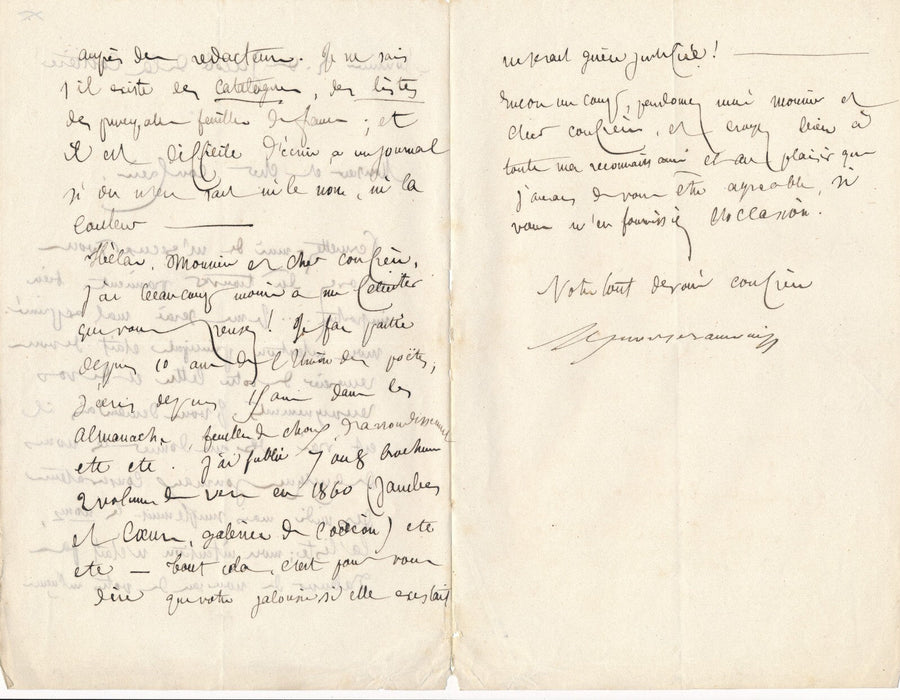 auprès des rédacteurs. Je ne sais
s'il existe des catalogues, des listes
des principales feuilles de france ; et
il est difficile d'écrire à un journal
si on n'en sait ni le nom, ni la
couleur
Hélas, Monsieur et cher confrère,
j'ai beaucoup moins à me féliciter
que vous ne pensez ! Je fais partie
depuis 10 ans de l'Union des poètes,
j'écris depuis 15 ans dans les
almanachs, feuilles de choux, d'arrondissement
etc etc. j'ai publié 7 ou 8 brochures
2 volumes de vers en 1860 (Jambes
et Cœurs, galeries de l'odéon) etc
etc — tout cela, c'est pour vous
dire que votre jalousie si elle existait
ne serait guère justifiée !
Encore un coup, pardonnez moi monsieur et
cher confrère, et croyez bien à
toute ma reconnaissance et au plaisir que
j'aurais de vous être agréable, si
vous m'en fournissiez l'occasion.
Votre tout dévoué confrère